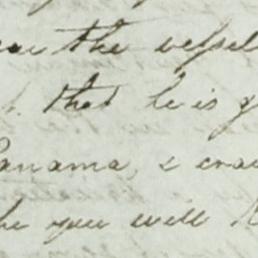 the vessel
that he is g
Panama, & cra
he you will